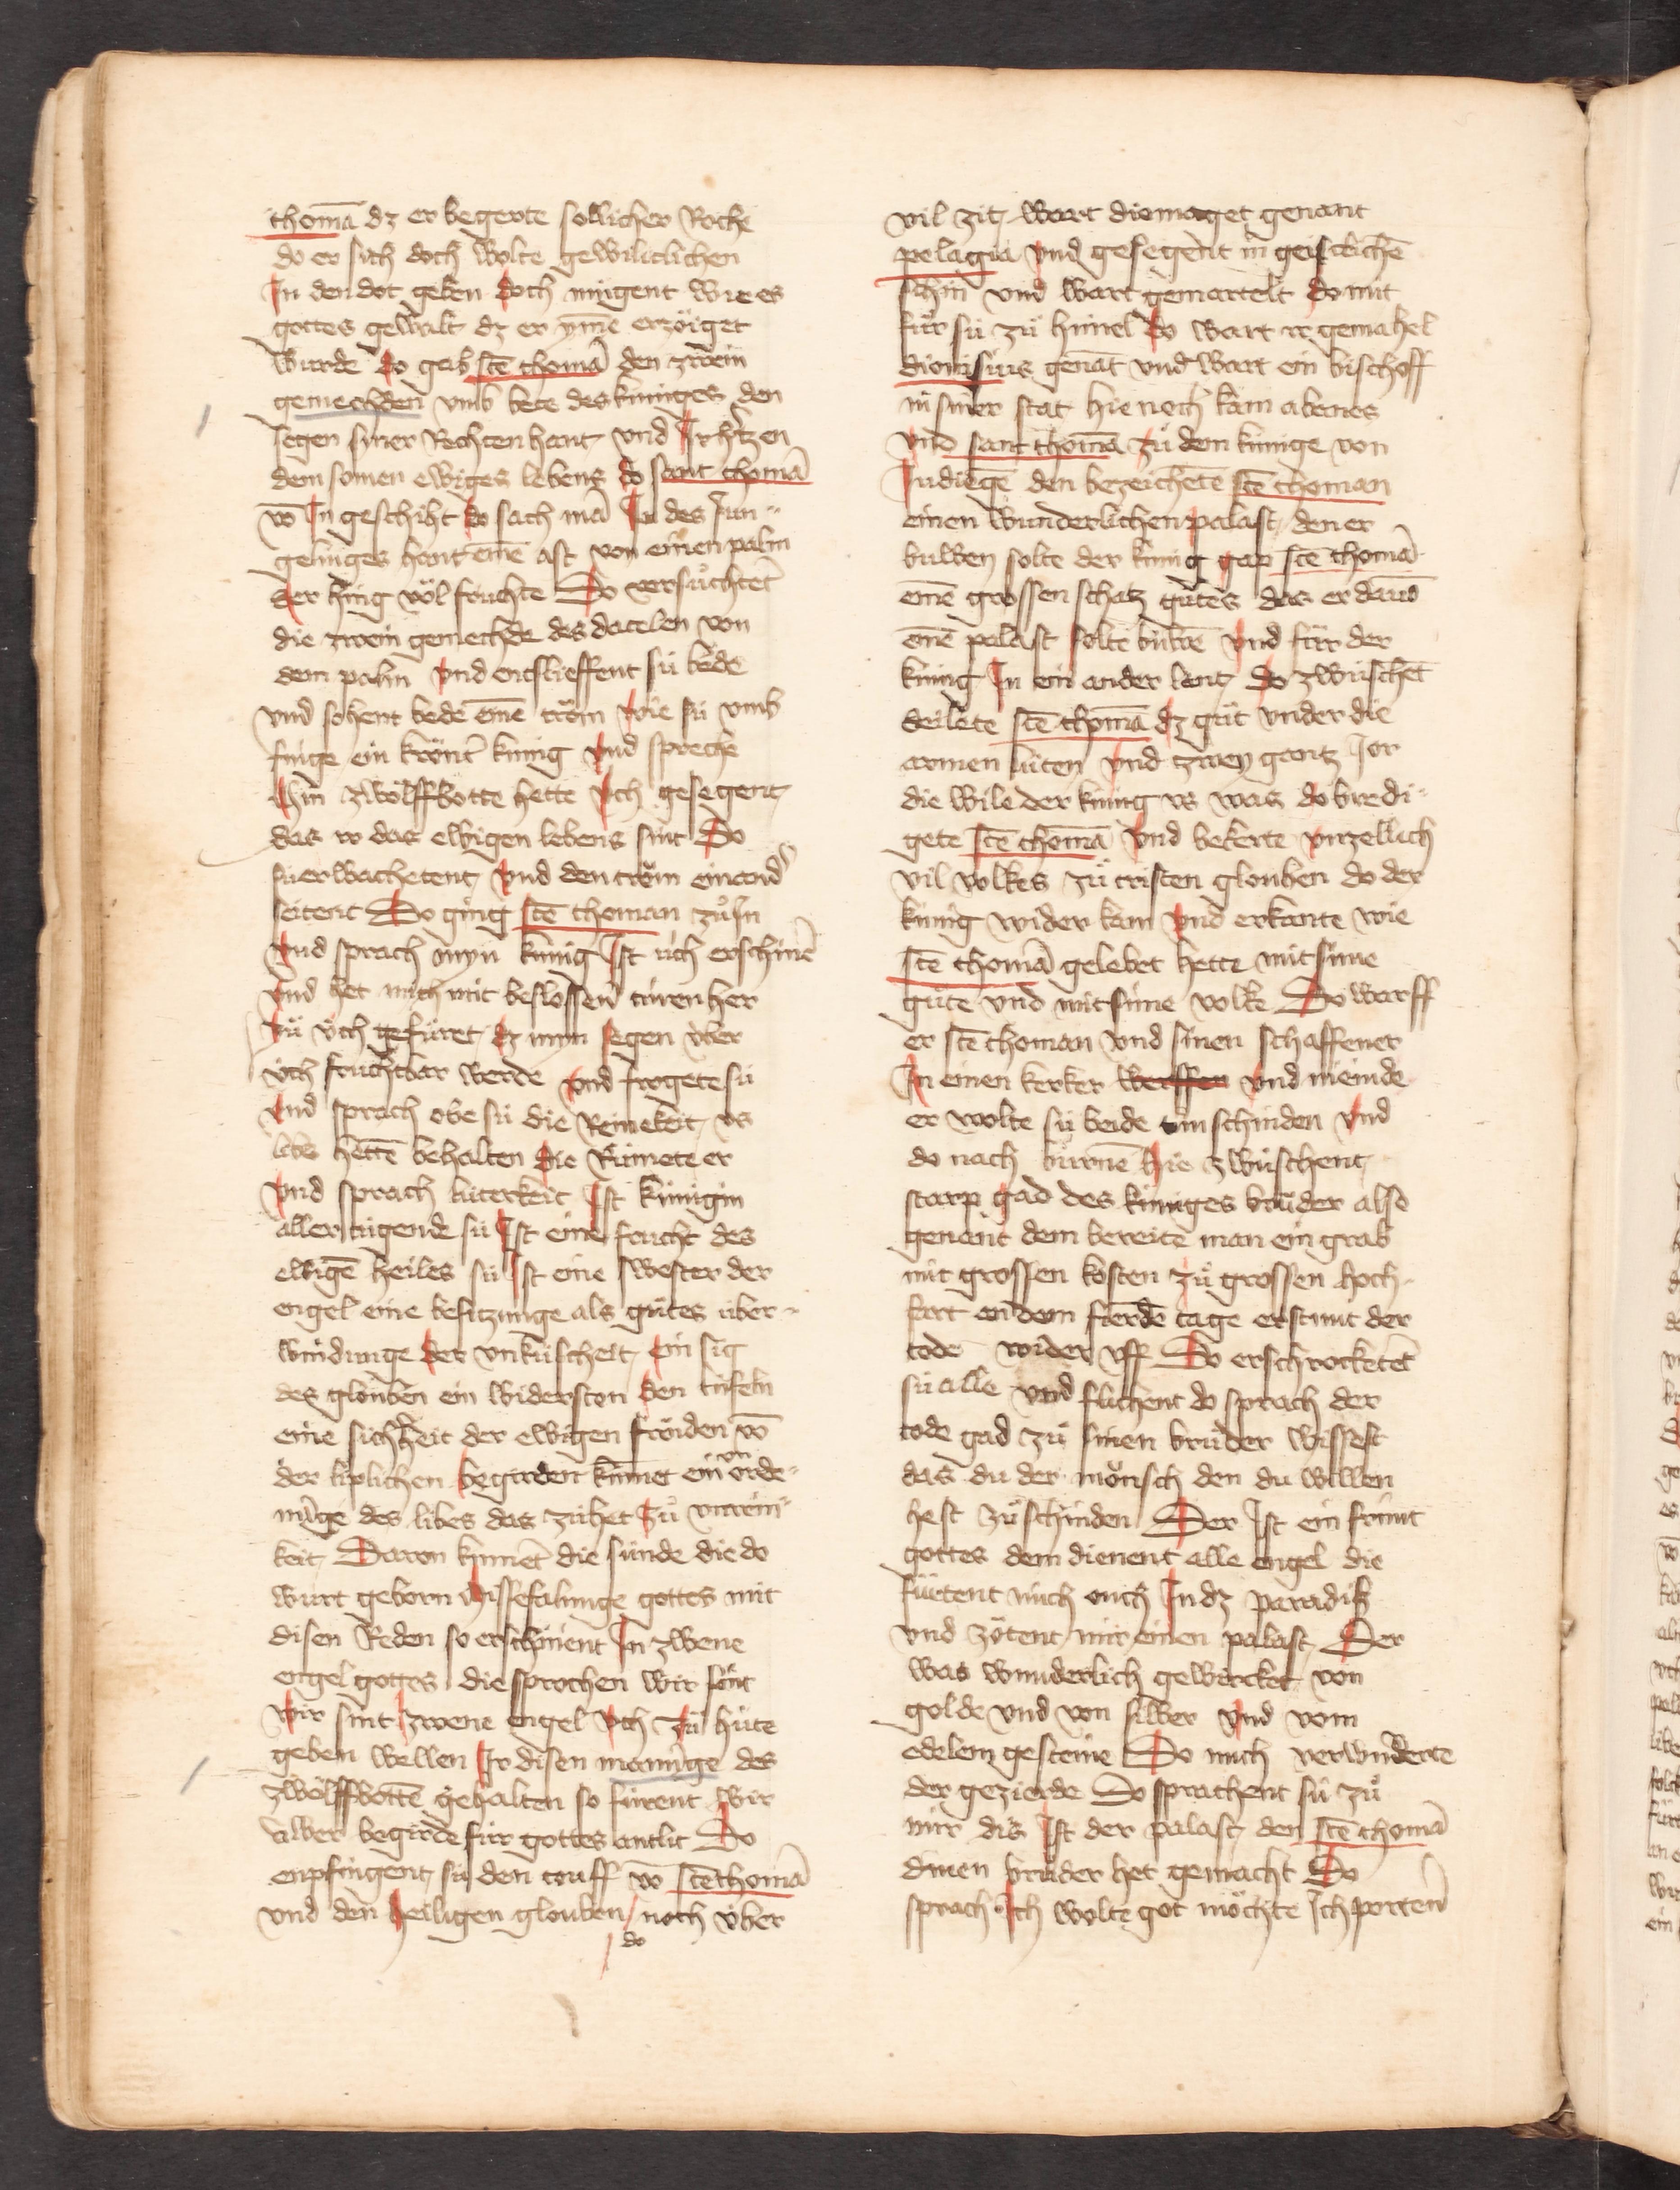 thomā dz er begerte sollicher Roche
do er sich doch wolte gewilliclichen
In den dot geben doch mügent wie es
gottes gewalt dz er yme erzöiget
wurde do gab stē thomā den zwein
gemechden vmb bete des küniges den
segen syner Rechten hant vnd Ir hˀtzen
dem somen ewiges lebens do sant thomā
vō In geschiht do sach mā In des Jun-
gelinges hant eīnē ast von einen palm
der hing völ fruchte Do versuͦchtēt
die zwein gemechde des datelen von
dem palm vnd entslieffent sü bede
vnd sohent bede eīnē tröm wie sü vmb
finge ein kröntˀ künig vnd spreche
min zwölffbotte hette v́ch gesegent
das ir das ewigen lebens sint Do
sü erwachetent vnd den tröm einandˀ
seitent Do ging stē thoman zuͦ In
vnd sprach myn künig Ist üch erschinē
vnd het mich mit beslossen türen her
zuͦ v́ch gefüret dz myn segen v́ber
v́ch fruchtbar werde vnd frogete sü
vnd sprach obe sü die Reinekeit vs
libes hettē behalten die Rümete er
vnd sprach luterkeit Ist künigin
aller tugende sü Ist eine frucht des
ewigē heiles sü Ist eine swester der
engel eine besitzunge als guͦtes über-
windunge der vnküscheit ein sig
des glouben ein widerston den tüfeln
eine sichˀheit der ewigen fröiden vō
der liplichen begirden kumet ein vn orde-
nūge des libes das zühet zuͦ vnrein-
keit Daron kumet die sünde die do
wurt geborn missefalunge gottes mit
disen Reden so erschinent In zwene
engel gottes die sprochen wir sint
wir sint zwene engel v́ch zuͦ huͦte
geben wellen Ir disen manūge des
zwölffbottē gehalten so fürent wir
üwer begirde für gottes antlit Do
enpfingent sü den touff vō stē thomā
vnd den heiligen glouben / noch v́ber
do
vil zit wart die maget genant
pelagia vnd gesegent in geistlichē
schin vnd wart gemartelt do mit
fuͦr sü zuͦ himel do wart ir gemahel
dionisius genāt vnd wart ein bischoff
in siner stat hie noch kam abenes
vnd sant thomā zuͦ dem künige von
Indiegē den bezeichete stē thoman
einen wunderlichen palast den er
buwen solte der künig gap stē thomā
eīnē grossen schatz guͦtes das er dauō
eīnē palast solte buͦwē vnd fuͦr der
künig In ein ander lant Do zwuschēt
deilete stē thomā dz guͦt vnder die
armen lüten vnd zwey gantz Jor
die wile der künig vs was do bredi-
gete stē thomā vnd bekerte vnzellich
vil volkes zuͦ cristen glouben do der
künig wider kam vnd erkante wie
stē thomā gelebet hette mit sime
guͦte vnd mit sime volke Do warff
er stē thoman vnd sinen schaffener
In einen kerker werffen vnd meinde
er wolte sü beide tuͦn schinden vnd
do nach burnē hie zwüschent
starp gad des küniges bruͦder also
genant dem bereite man ein grab
mit grossen kosten zuͦ grossen hoch-
fart an dem fierdē tage erstuͦnt der
tode wider vff Do erschrocketēt
sü alle vnd fluhent do sprach der
tode gad zuͦ sinen bruͦder wissest
das du der mönsch den du willen
hest zuͦ schinden Der Ist ein frünt
gottes dem dienent alle engel die
fürtent mich ouch In dz paradiß
vnd zöitent mir einen palast Der
was wunderlich gewircket von
golde vnd von silber vnd vom
edelem gesteine Do mich verwunderte
der gezierde Do sprachent sü zuͦ
mir dis Ist der palast den stē thomā
dinen bruͦder het gemacht Do
sprach Ich wolte got möchte Ich porten